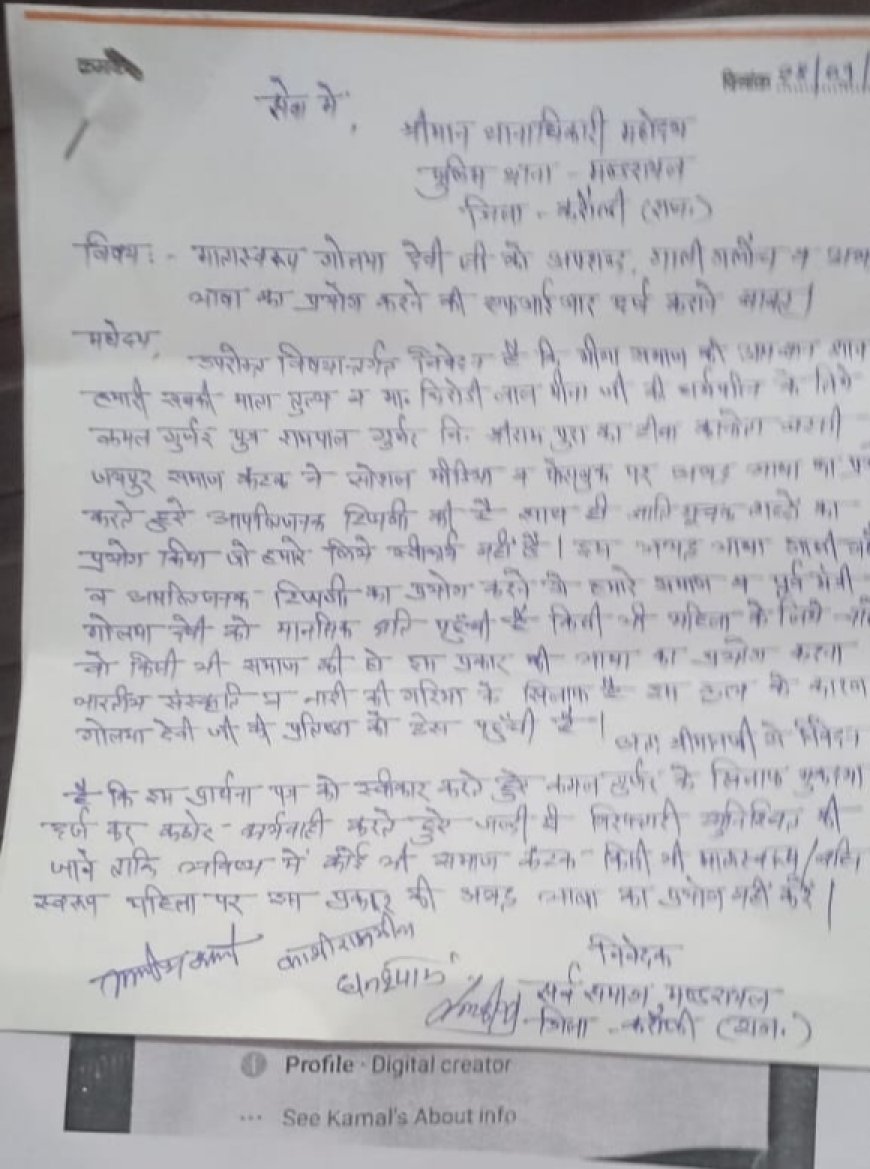 क्रमांक
दिनांक
सेवा में,
श्रीमान थानाधिकारी महोदय
पुलिस थाना - मण्डरायल
जिला - करौली (राज.)
विषय :- मातास्वरूप गोलमा देवी जी को अपशब्द, गाली गलौच व
भाषा का प्रयोग करने की एफआईआर दर्ज कराने बाबत।
महोदय,
उपरोक्त विषयान्तर्गत निवेदन है कि मीणा समाज की
हमारी सबकी माता तुल्य व मा. किरोडी लाल मीना जी की धर्मपत्नि के लिये
कमल गुर्जर पुत्र रामपाल गुर्जर नि. श्रीराम पुरा का
जयपुर समाज कंटक ने सोशल मीडिया व फेसबुक पर अभद्र भाषा का
करते हुये आपत्तिजनक टिप्पणी की है साथ ही जाति सूचक शब्दों का
प्रयोग किया जो हमारे लिये स्वीकार्य नहीं है। इस अभद्र भाषा
व आपत्तिजनक टिप्पणी का उपयोग करने से हमारे समाज व पूर्व मंत्री
गोलमा देवी को मानसिक क्षति पहुँची है किसी भी महिला के लिये
वो किसी भी समाज की हो इस प्रकार की भाषा का प्रयोग करना
भारतीय संस्कृति व नारी की गरिमा के खिलाफ है इस के कारण
गोलमा देवी जी की प्रतिष्ठा को ठेस पहुँची है।
अतः श्रीमानजी से निवेदन
है कि इस प्रार्थना पत्र को स्वीकार करते हुये कमल गुर्जर के खिलाफ मुकदमा
दर्ज कर कठोर कार्यवाही करते हुये जल्दी से गिरफ्तारी सुनिश्चित की
जाने ताकि भविष्य में कोई भी समाज कंटक किसी भी मातास्वरूप/
स्वरूप महिला पर इस प्रकार की अभद्र भाषा का प्रयोग नहीं करें।
काशीराम मीना
घनश्याम
निवेदक
सर्व समाज मण्डरायल
जिला - करौली (राज.)
Profile · Digital creator
... See Kamal's About info